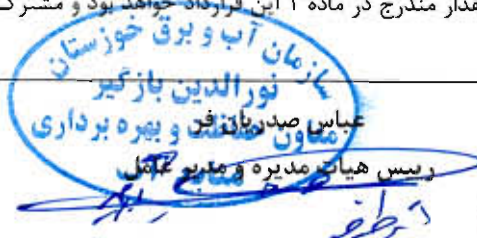 مقدار مندرج در ماده ۱ این قرارداد خواهد بود و مشترک
سازمان آب و برق خوزستان
نورالدین بازگیر
معاون حفاظت و بهره برداری
منابع آب
عباس صدریان فر
رییس هیات مدیره و مدیر عامل